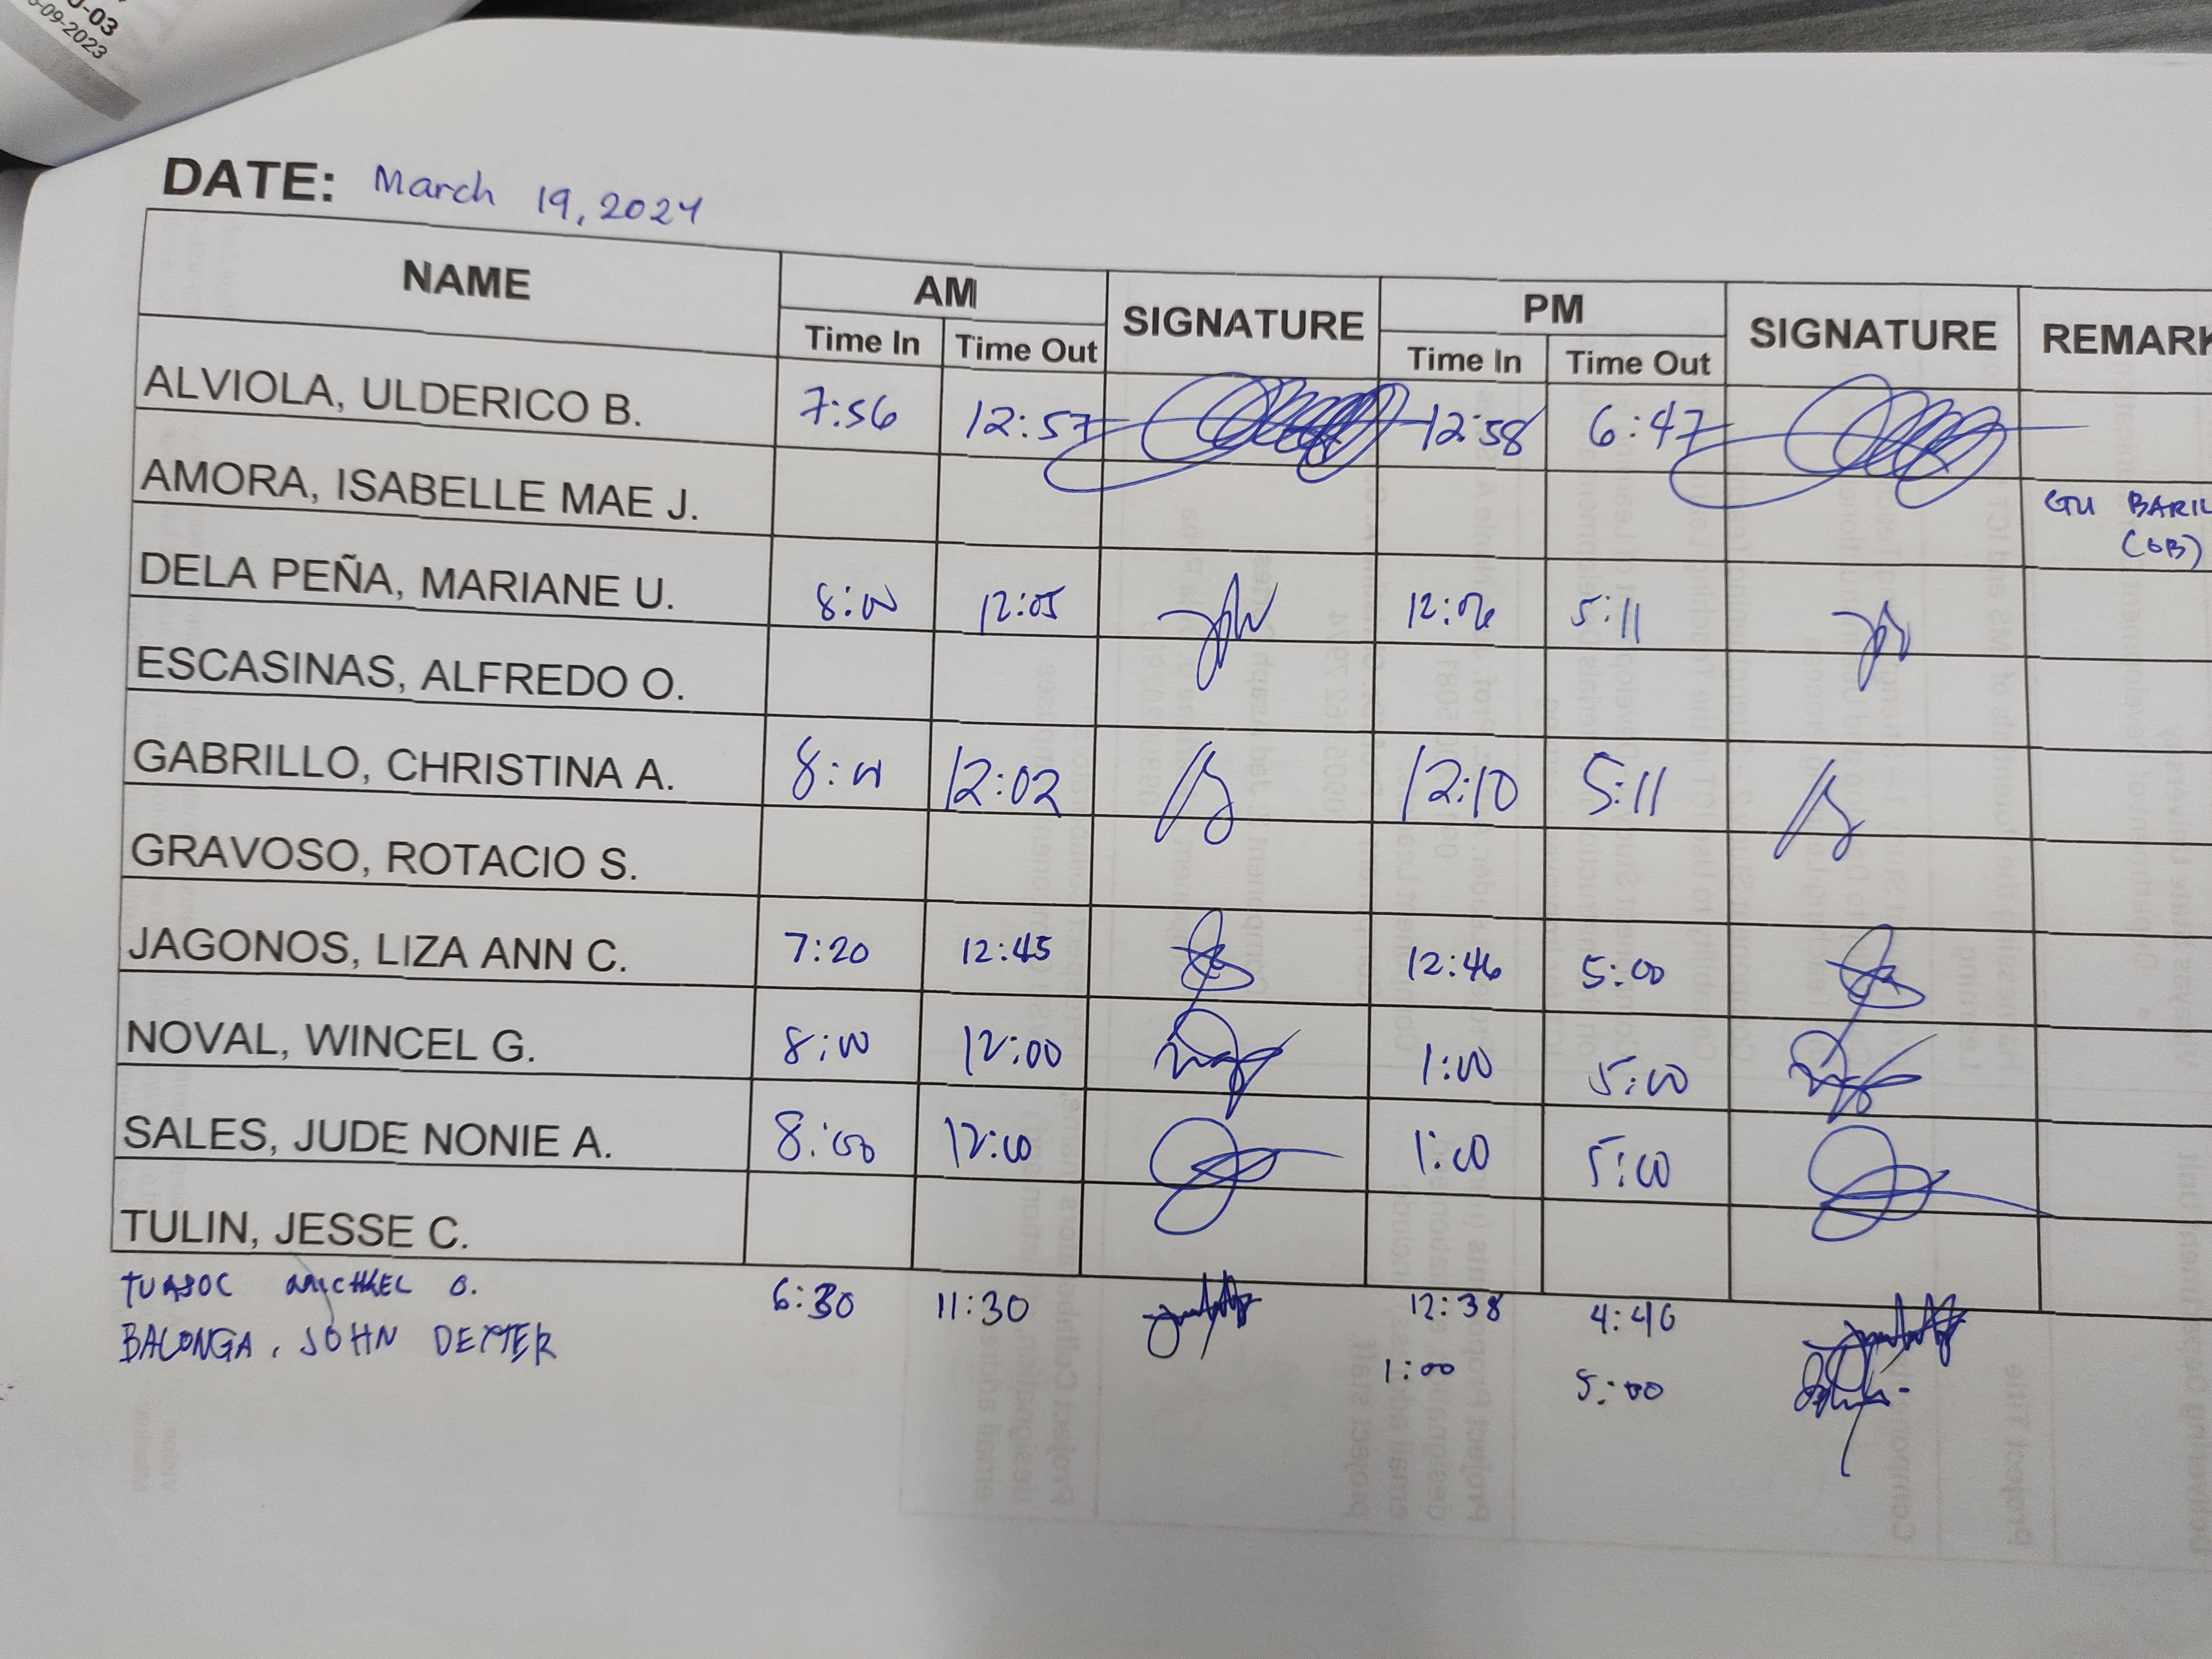 -03
-09-2023
DATE: March 19, 2024
NAME AM SIGNATURE PM SIGNATURE REMARK
Time In Time Out Time In Time Out
ALVIOLA, ULDERICO B. 7:56 12:57 12:58 6:47
AMORA, ISABELLE MAE J. GU BARIL
(OB)
DELA PEÑA, MARIANE U. 8:00 12:05 12:06 5:11
ESCASINAS, ALFREDO O.
GABRILLO, CHRISTINA A. 8:01 12:02 12:10 5:11
GRAVOSO, ROTACIO S.
JAGONOS, LIZA ANN C. 7:20 12:45 12:46 5:00
NOVAL, WINCEL G. 8:00 12:00 1:00 5:00
SALES, JUDE NONIE A. 8:00 12:00 1:00 5:00
TULIN, JESSE C.
MICHAEL O. 6:30 11:30 12:38 4:46
BALONGA, JOHN DEXTER 1:00 5:00